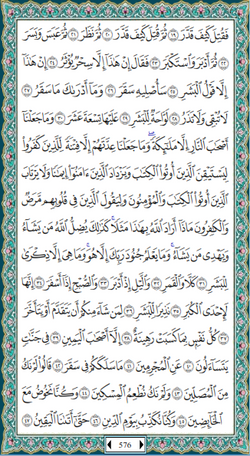 فَقُتِلَ كَيْفَ قَدَّرَ ١٩ ثُمَّ قُتِلَ كَيْفَ قَدَّرَ ٢٠ ثُمَّ نَظَرَ ٢١ ثُمَّ عَبَسَ وَبَسَرَ
٢٢ ثُمَّ أَدْبَرَ وَٱسْتَكْبَرَ ٢٣ فَقَالَ إِنْ هَٰذَآ إِلَّا سِحْرٌ يُؤْثَرُ ٢٤ إِنْ هَٰذَآ
إِلَّا قَوْلُ ٱلْبَشَرِ ٢٥ سَأُصْلِيهِ سَقَرَ ٢٦ وَمَآ أَدْرَىٰكَ مَا سَقَرُ ٢٧
لَا تُبْقِى وَلَا تَذَرُ ٢٨ لَوَّاحَةٌ لِّلْبَشَرِ ٢٩ عَلَيْهَا تِسْعَةَ عَشَرَ ٣٠ وَمَا جَعَلْنَآ
أَصْحَٰبَ ٱلنَّارِ إِلَّا مَلَٰٓئِكَةً ۙ وَمَا جَعَلْنَا عِدَّتَهُمْ إِلَّا فِتْنَةً لِّلَّذِينَ كَفَرُوا۟
لِيَسْتَيْقِنَ ٱلَّذِينَ أُوتُوا۟ ٱلْكِتَٰبَ وَيَزْدَادَ ٱلَّذِينَ ءَامَنُوٓا۟ إِيمَٰنًا ۙ وَلَا يَرْتَابَ
ٱلَّذِينَ أُوتُوا۟ ٱلْكِتَٰبَ وَٱلْمُؤْمِنُونَ ۙ وَلِيَقُولَ ٱلَّذِينَ فِى قُلُوبِهِم مَّرَضٌ
وَٱلْكَٰفِرُونَ مَاذَآ أَرَادَ ٱللَّهُ بِهَٰذَا مَثَلًا ۚ كَذَٰلِكَ يُضِلُّ ٱللَّهُ مَن يَشَآءُ
وَيَهْدِى مَن يَشَآءُ ۚ وَمَا يَعْلَمُ جُنُودَ رَبِّكَ إِلَّا هُوَ ۚ وَمَا هِىَ إِلَّا ذِكْرَىٰ
لِلْبَشَرِ ٣١ كَلَّا وَٱلْقَمَرِ ٣٢ وَٱلَّيْلِ إِذْ أَدْبَرَ ٣٣ وَٱلصُّبْحِ إِذَآ أَسْفَرَ ٣٤ إِنَّهَا
لَإِحْدَى ٱلْكُبَرِ ٣٥ نَذِيرًا لِّلْبَشَرِ ٣٦ لِمَن شَآءَ مِنكُمْ أَن يَتَقَدَّمَ أَوْ يَتَأَخَّرَ
٣٧ كُلُّ نَفْسٍۭ بِمَا كَسَبَتْ رَهِينَةٌ ٣٨ إِلَّآ أَصْحَٰبَ ٱلْيَمِينِ ٣٩ فِى جَنَّٰتٍ
يَتَسَآءَلُونَ ٤٠ عَنِ ٱلْمُجْرِمِينَ ٤١ مَا سَلَكَكُمْ فِى سَقَرَ ٤٢ قَالُوا۟ لَمْ نَكُ
مِنَ ٱلْمُصَلِّينَ ٤٣ وَلَمْ نَكُ نُطْعِمُ ٱلْمِسْكِينَ ٤٤ وَكُنَّا نَخُوضُ مَعَ
ٱلْخَآئِضِينَ ٤٥ وَكُنَّا نُكَذِّبُ بِيَوْمِ ٱلدِّينِ ٤٦ حَتَّىٰٓ أَتَىٰنَا ٱلْيَقِينُ ٤٧
576